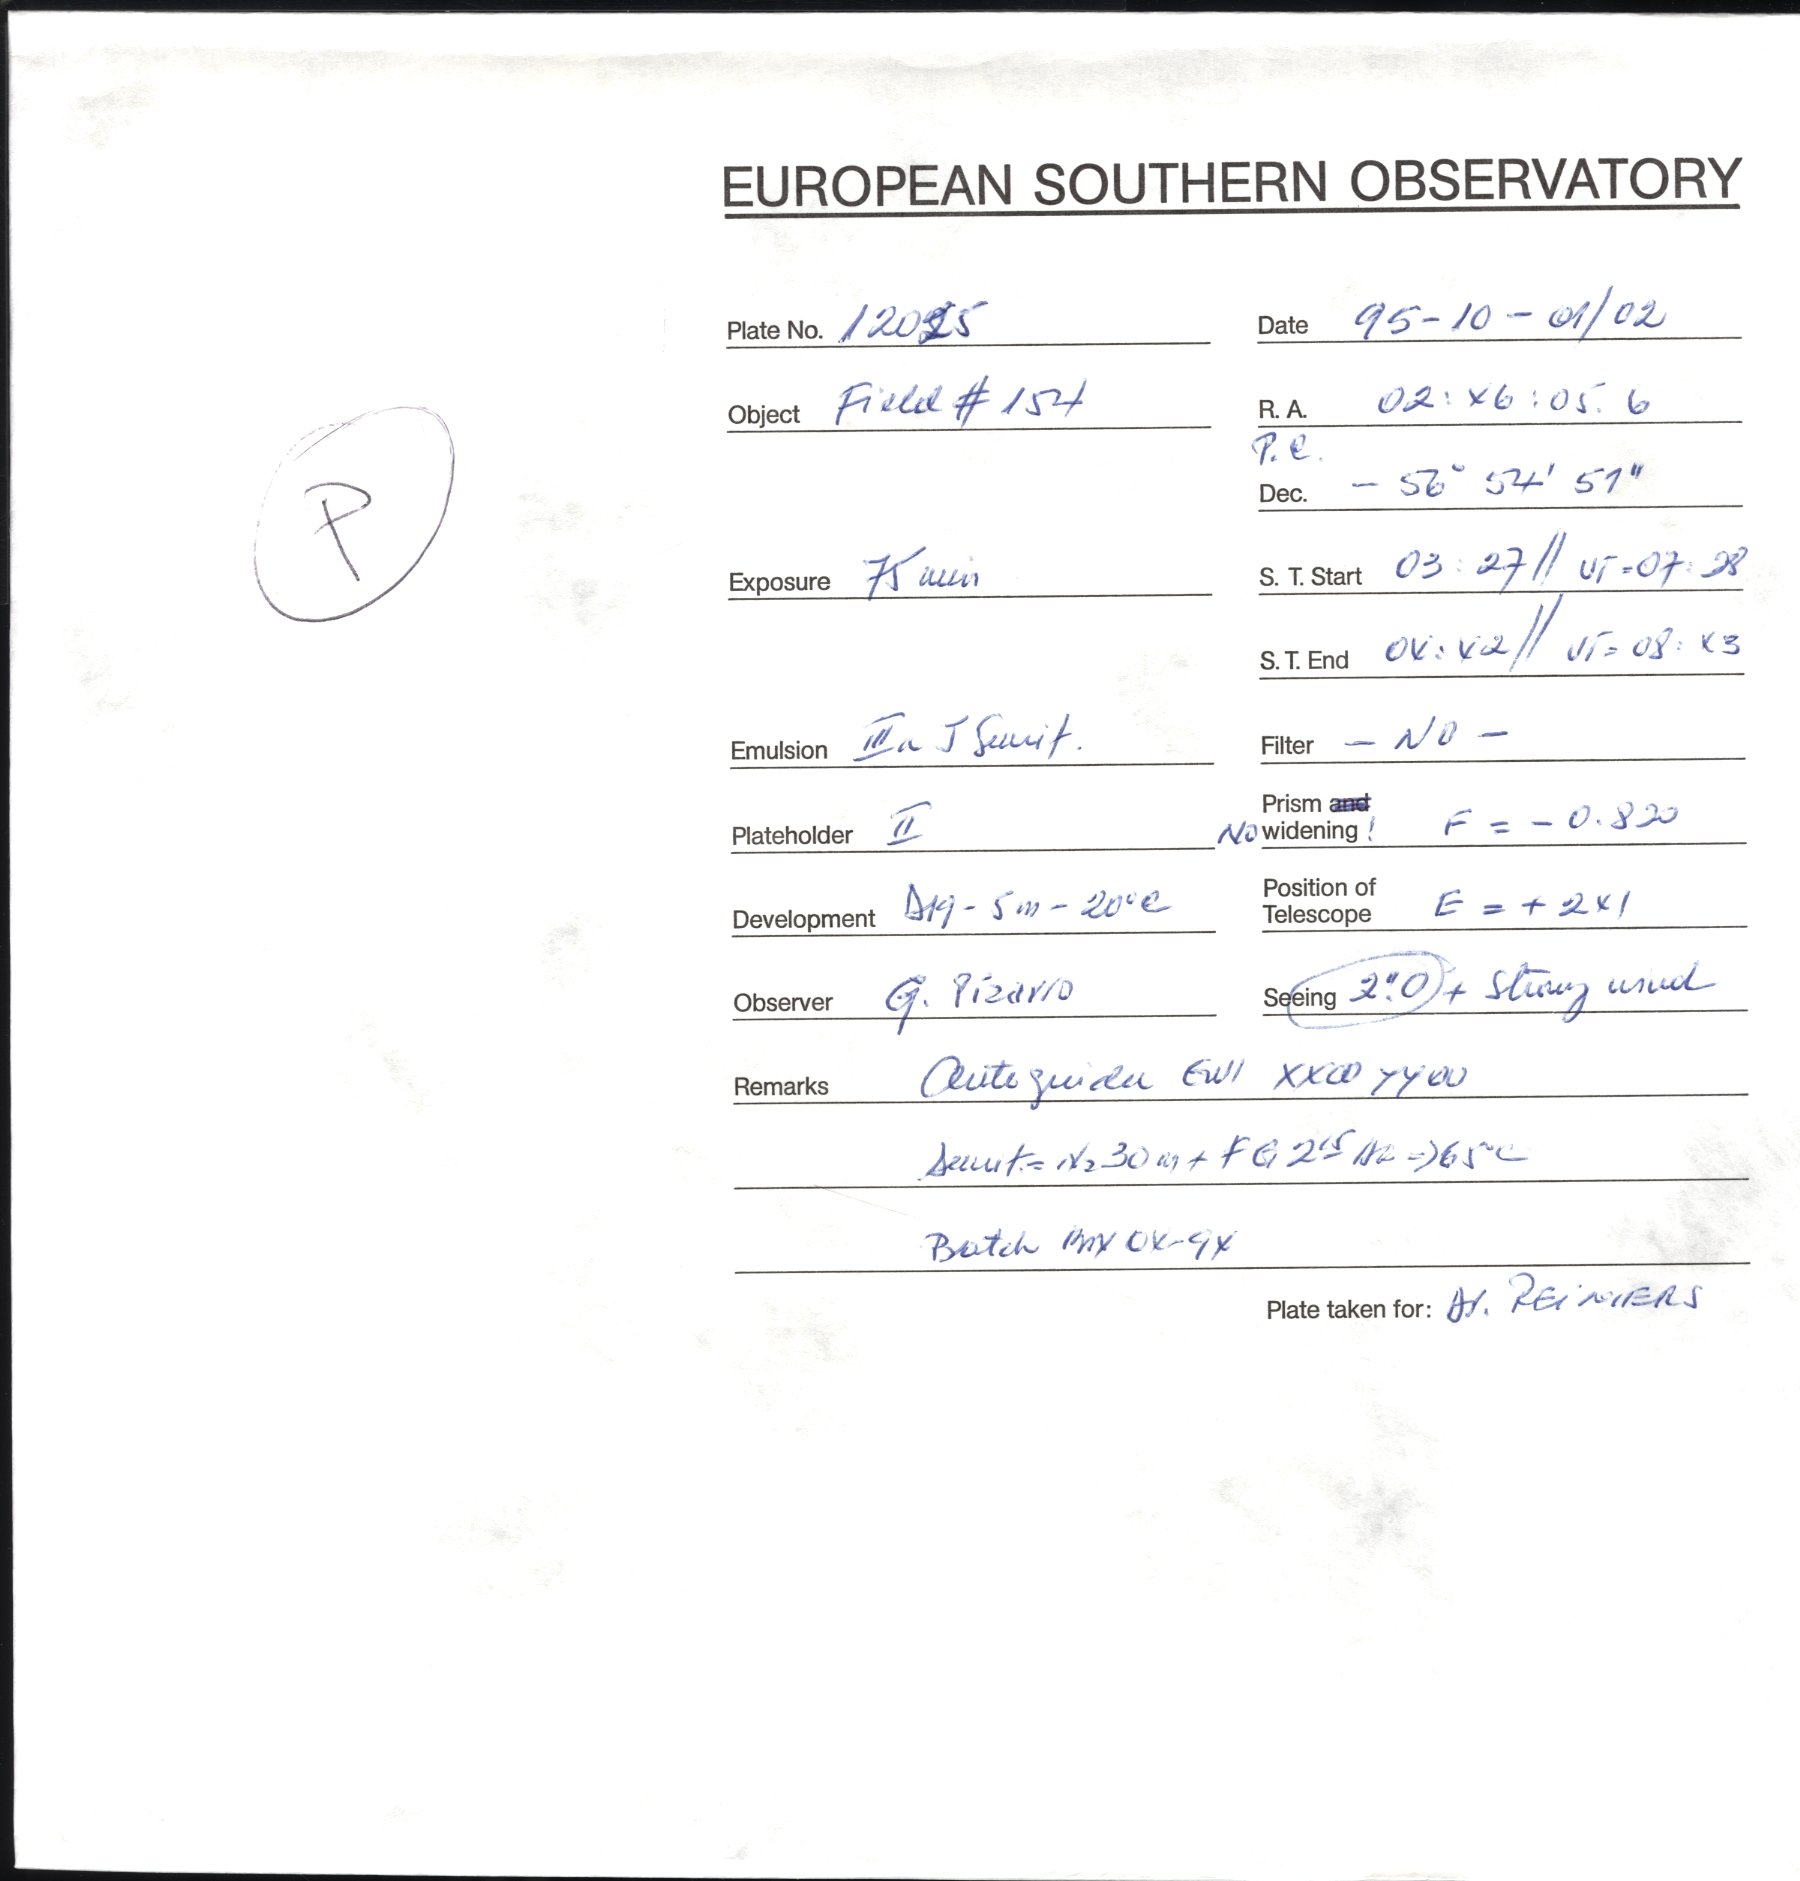 EUROPEAN SOUTHERN OBSERVATORY
Plate No. Date 95-10-01/02
Object Field # 154 R. A. 02:46:05.6
P
P.C.
Dec. - 56° 54' 51"
Exposure 75 min S. T. Start 03:27 // UT=07:28
S. T. End 04:42 // UT=08:43
Emulsion IIIa J Sensit. Filter - NO -
Prism and
Plateholder II NO widening! F = - 0.820
Position of
Development D19 - 5m - 20°C Telescope E = + 241
Observer G. Pizarro Seeing 2".0 + Strong wind
Remarks Autoguider XX00 YY00
Sensit.= N2 30m + FG H2 => 65°C
Batch 04-94
Plate taken for: Dr. REIMERS